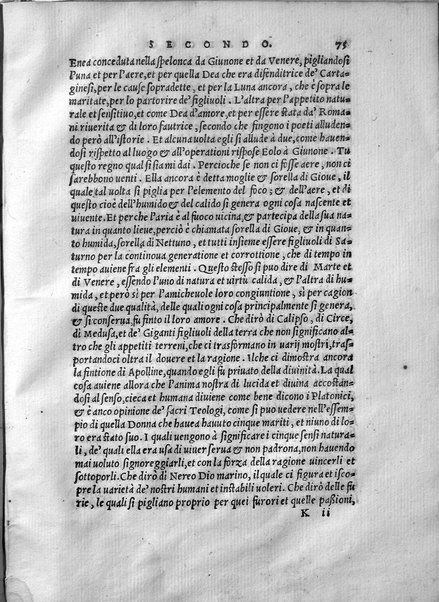 SECONDO. 75
Enea conceduta nella spelonca da Giunone et da Venere, pigliandosi
l'una et per l'aere, et per quella Dea che era difenditrice de' Carta-
ginesi, per le cause sopradette, et per la Luna ancora, che è sopra le
maritate, per lo partorire de' figliuoli. L'altra per l'appetito natura
le et sensitiuo, et come Dea d'amore, et per essere stata da' Roma
ni riuerita & di loro fautrice, secondo che fingono i poeti alluden-
do però all'istorie. Et alcuna uolta egli si allude à due, come hauen-
dosi rispetto al luogo & all'operationi rispose Eolo à Giunone. Tu
questo regno qual si sia mi dai. Percioche se non ci fosse aere, non ci
sarebbono uenti. Ella ancora è detta moglie & sorella di Gioue, il
quale tal uolta si piglia per l'elemento del foco; & dell'aere, et di
questo cioè dell'humido & del calido si genera ogni cosa nascente et
uiuente. Et perche l'aria è al fuoco uicina, & partecipa della sua na
tura in quanto lieue, perciò è chiamata sorella di Gioue, & in quan
to humida, sorella di Nettuno, et tutti insieme essere figliuoli di Sa
turno per la continoua generatione et corrottione, che di tempo in
tempo auiene fra gli elementi. Questo stesso si puo dire di Marte et
di Venere, essendo l'uno di natura et uirtù calida, & l'altra di hu
mida, et però si per l'amicheuole lor congiuntione, si per cagion
di queste due qualità, delle quali ogni cosa principalmente si genera,
& si conserua, fu finto il loro amore. Che dirò di Calipso, di Circe,
di Medusa, et de' Giganti figliuoli della terra che non significano al-
tro che gli appetiti terreni, che ci trasformano in uarij mostri, tras-
portandoci oltra il douere et la ragione. Ilche ci dimostra ancora
la fintione di Apolline, quando egli fu priuato della diuinità. La qual
cosa auiene allora che l'anima nostra di lucida et diuina accostan-
dosi al senso, cieca et humana diuiene come bene dicono i Platonici,
& è anco opinione de' sacri Teologi, come si puo uedere nell'essem-
pio di quella Donna che hauea hauuto cinque mariti, et niuno di lo-
ro era stato suo. I quali uengono à significare i cinque sensi natura-
li, de' quali ella era usa di uiuer serua & non padrona, non hauendo
mai uoluto signoreggiarli, et con la forza della ragione uincerli et
sottoporli. Che dirò di Nereo Dio marino, il quale ci figura et isco-
pre la uarietà de' nostri humani et instabili uoleri. Che dirò delle fu
rie, le quali si pigliano proprio per quei furori et quelle passioni,
K ii